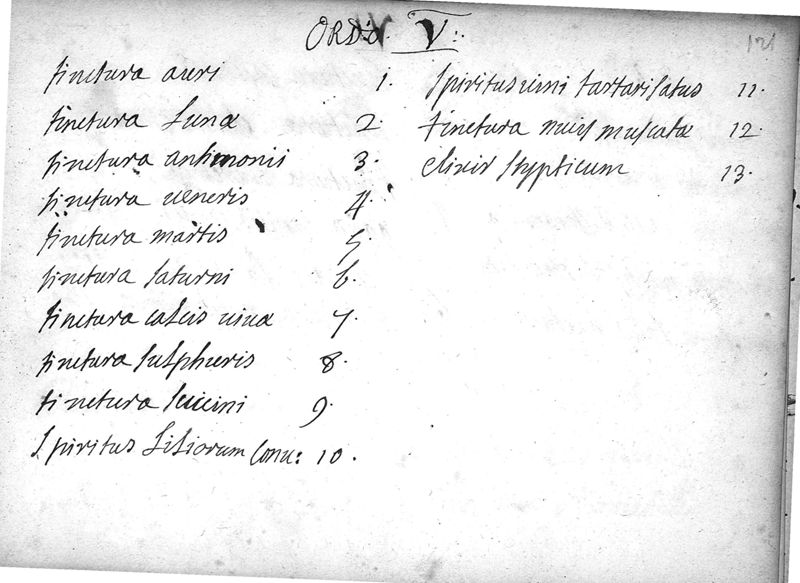 ORDO V:
121
tinctura auri 1.
tinctura Lunæ 2.
tinctura antimonii 3.
tinctura ueneris 4.
tinctura martis 5.
tinctura saturni 6.
tinctura calcis uiuæ 7.
tinctura sulphuris 8.
tinctura succini 9.
Spiritus Liliorum Conu: 10.
Spiritus uini tartarisatus 11.
tinctura nucis muscatæ 12.
elixir stypticum 13.